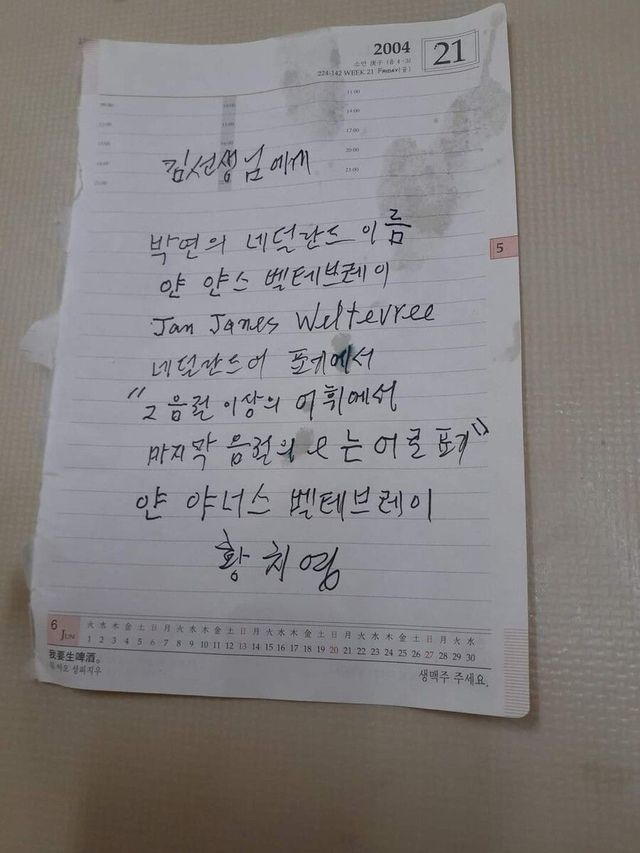 2004 21
소만 庚子 (음 4·3)
224-142 WEEK 21 FRIDAY(금)
11:00
17:00
20:00
김선생님에게
박연의 네덜란드 이름
5
얀 얀스 벨테브레이
Jan Janes Weltevree
네덜란드어 표기에서
"2음절 이상의 어휘에서
마지막 음절의 e는 어로 표기"
얀 야너스 벨테브레이
황치영
6 JUN
火 水 木 金 土 日 月 火 水 木 金 土 日 月 火 水 木 金 土 日 月 火 水 木 金 土 日 月 火 水
1 2 3 4 5 6 7 8 9 10 11 12 13 14 15 16 17 18 19 20 21 22 23 24 25 26 27 28 29 30
我要生啤酒。
생맥주 주세요.